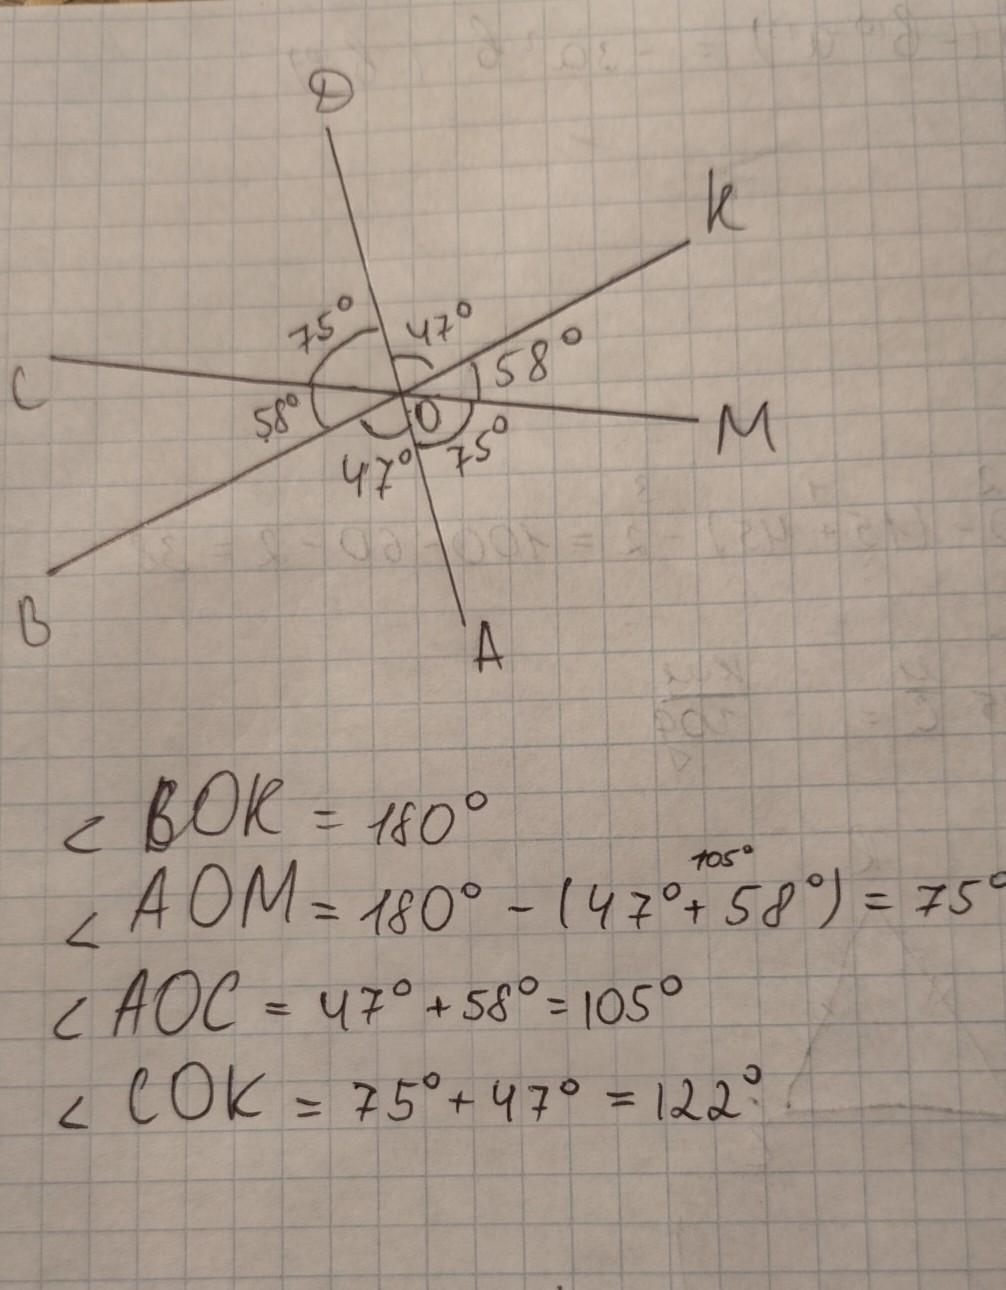 D
K
75° 47°
58°
C
58° O
M
47° 75°
B
A
< BOK = 180°
105°
< AOM = 180° - (47° + 58°) = 75°
< AOC = 47° + 58° = 105°
< COK = 75° + 47° = 122°